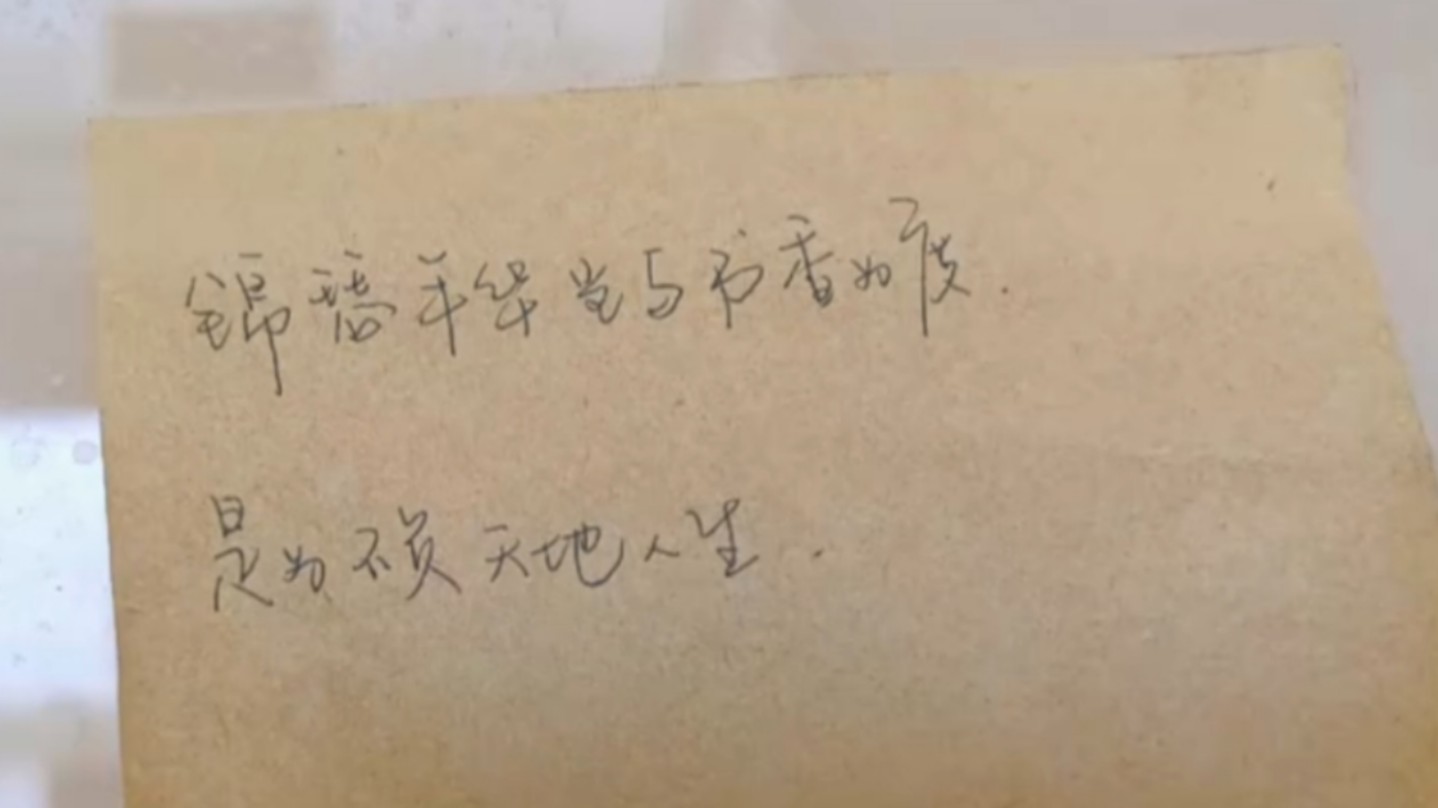 锦瑟年华当与书香为度.
是为不负天地人生.